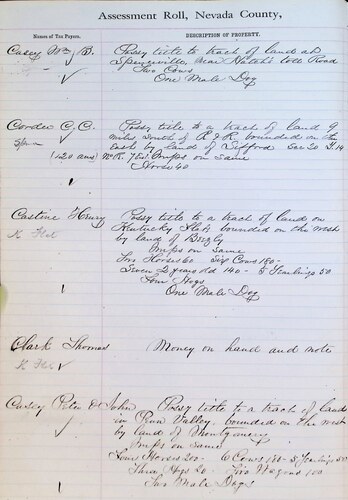 Assessment Roll, Nevada County,
Names of Tax Payers.
DESCRIPTION OF PROPERTY.
Casey Wm B.
Possy title to tract of land at
Spenceville, near Hatch's toll Road
Two Cows
One Male Dog
Cordes C. C.
Possy title to a tract of land 9
miles South of R & R bounded on the
East by land of Sec 20 T. 14
(120 ams) Imps on same
Horse 40
Castine Henry
K Flat
Possy title to a tract of land on
Kentucky Flat bounded on the west
by land of
Imps on same
Two Horses 60 Six Cows 180-
Seven 2 years old 140- 5 Yearlings 50
Four Hogs
One Male Dog
Clark Thomas
K Flat
Money on hand and note
Curley Peter & John
Possy title to a tract of land
in Penn Valley, bounded on the west
by land of Montgomery
Imps on same
Four Horses 200- 6 Cows 150- 5 Yearlings 50
Three Hogs 20 Two Wagons 100
Two Male Dogs